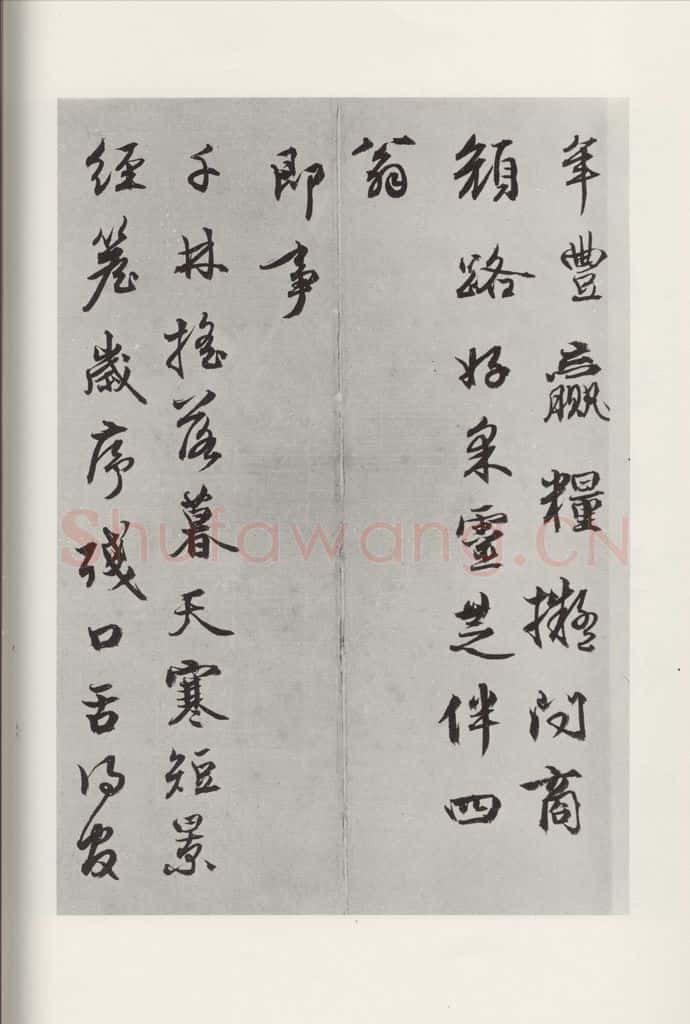 年豐贏糧擬問商
顏路好采靈芝伴四
翁
即事
千林搖落暮天寒短景
經簷歲序殘口舌得官
Shufawang.CN